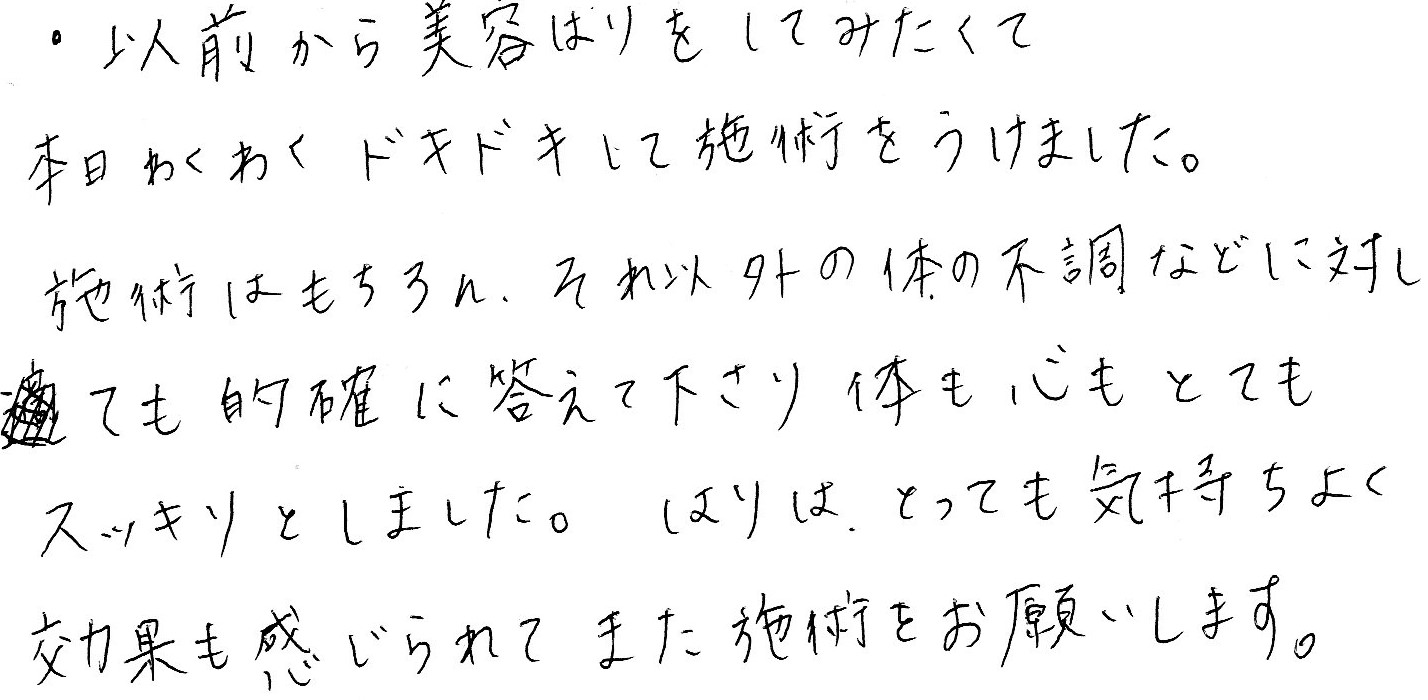 ・以前から美容はりをしてみたくて
本日わくわくドキドキして施術をうけました。
施術はもちろん、それ以外の体の不調などに対し
ても的確に答えて下さり体も心もとても
スッキリとしました。 はりは、とっても気持ちよく
効果も感じられてまた施術をお願いします。